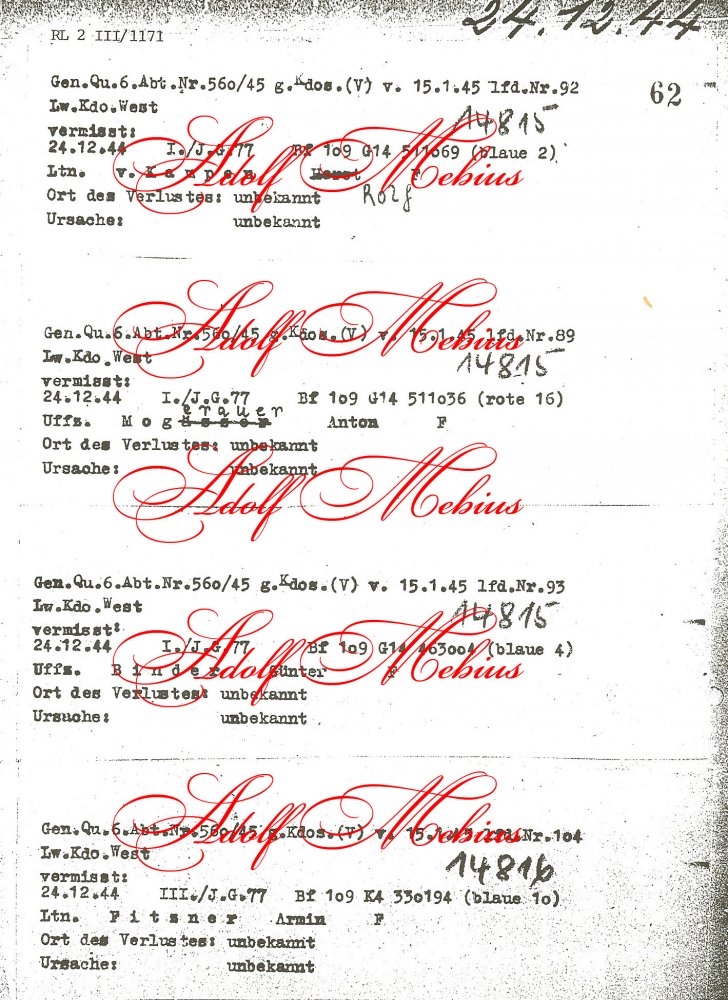 24.12.44
RL 2 III/1171
62
Gen.Qu.6.Abt.Nr.56o/45 g.Kdos.(V) v. 15.1.45 lfd.Nr.92
Lw.Kdo.West
14815
vermisst:
24.12.44 I./J.G.77 Bf 1o9 G14 511o69 (blaue 2)
Ltn. v. K a m p e n Horst F
Rolf
Ort des Verlustes: unbekannt
Ursache: unbekannt
Adolf Mebius
Gen.Qu.6.Abt.Nr.56o/45 g.Kdos.(V) v. 15.1.45 lfd.Nr.89
Lw.Kdo.West
14815
vermisst:
24.12.44 I./J.G.77 Bf 1o9 G14 511o36 (rote 16)
erauer
Uffz. M o g Anton F
Ort des Verlustes: unbekannt
Ursache: unbekannt
Adolf Mebius
Adolf Mebius
Gen.Qu.6.Abt.Nr.56o/45 g.Kdos.(V) v. 15.1.45 lfd.Nr.93
Lw.Kdo.West
14815
vermisst:
24.12.44 I./J.G.77 Bf 1o9 G14 463oo4 (blaue 4)
Uffz. B i n d e r Günter F
Ort des Verlustes: unbekannt
Ursache: unbekannt
Adolf Mebius
Gen.Qu.6.Abt.Nr.56o/45 g.Kdos.(V) v. 15.1.45 lfd.Nr.1o4
Lw.Kdo.West
14816
vermisst:
24.12.44 III./J.G.77 Bf 1o9 K4 33o194 (blaue 1o)
Ltn. F i t z n e r Armin F
Ort des Verlustes: unbekannt
Ursache: unbekannt
Adolf Mebius